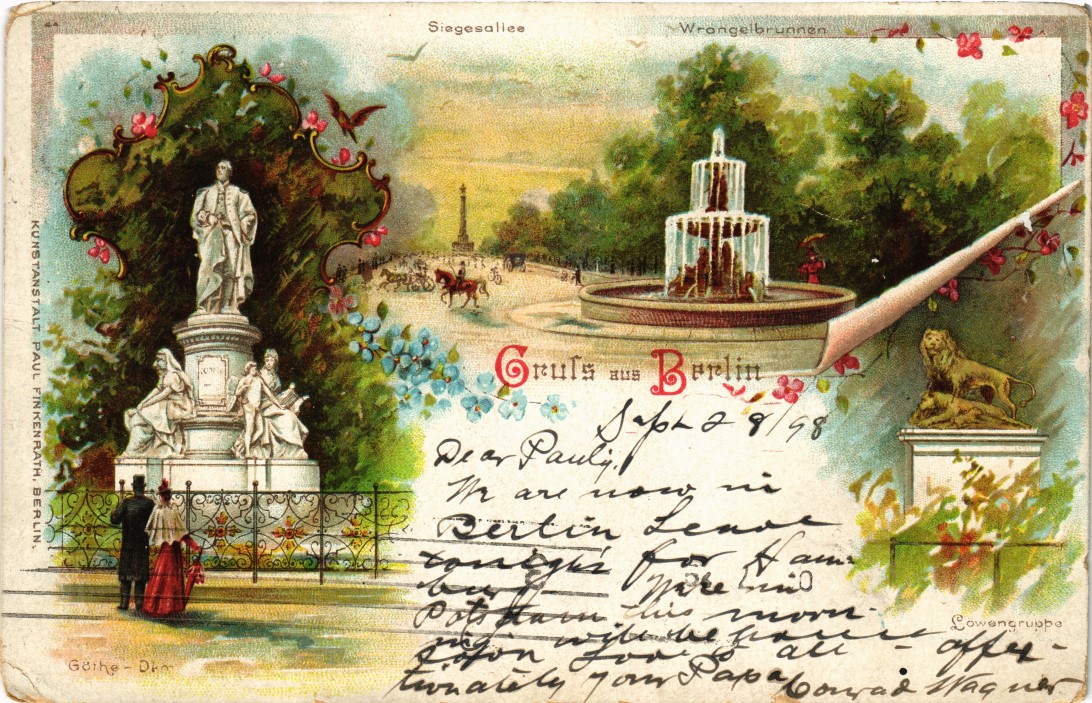 Siegesallee
Wrangelbrunnen
KUNSTANSTALT PAUL FINKENRATH, BERLIN.
Gruss aus Berlin
Sept 28/98
Dear Pauly,
We are now in
Berlin Leave
tonight for Ham-
burg Were in
Potsdam this morn-
ing will be home
soon Love to all - affec-
tionately your Papa
Conrad Wagner
Löwengruppe
Göthe-Dkm